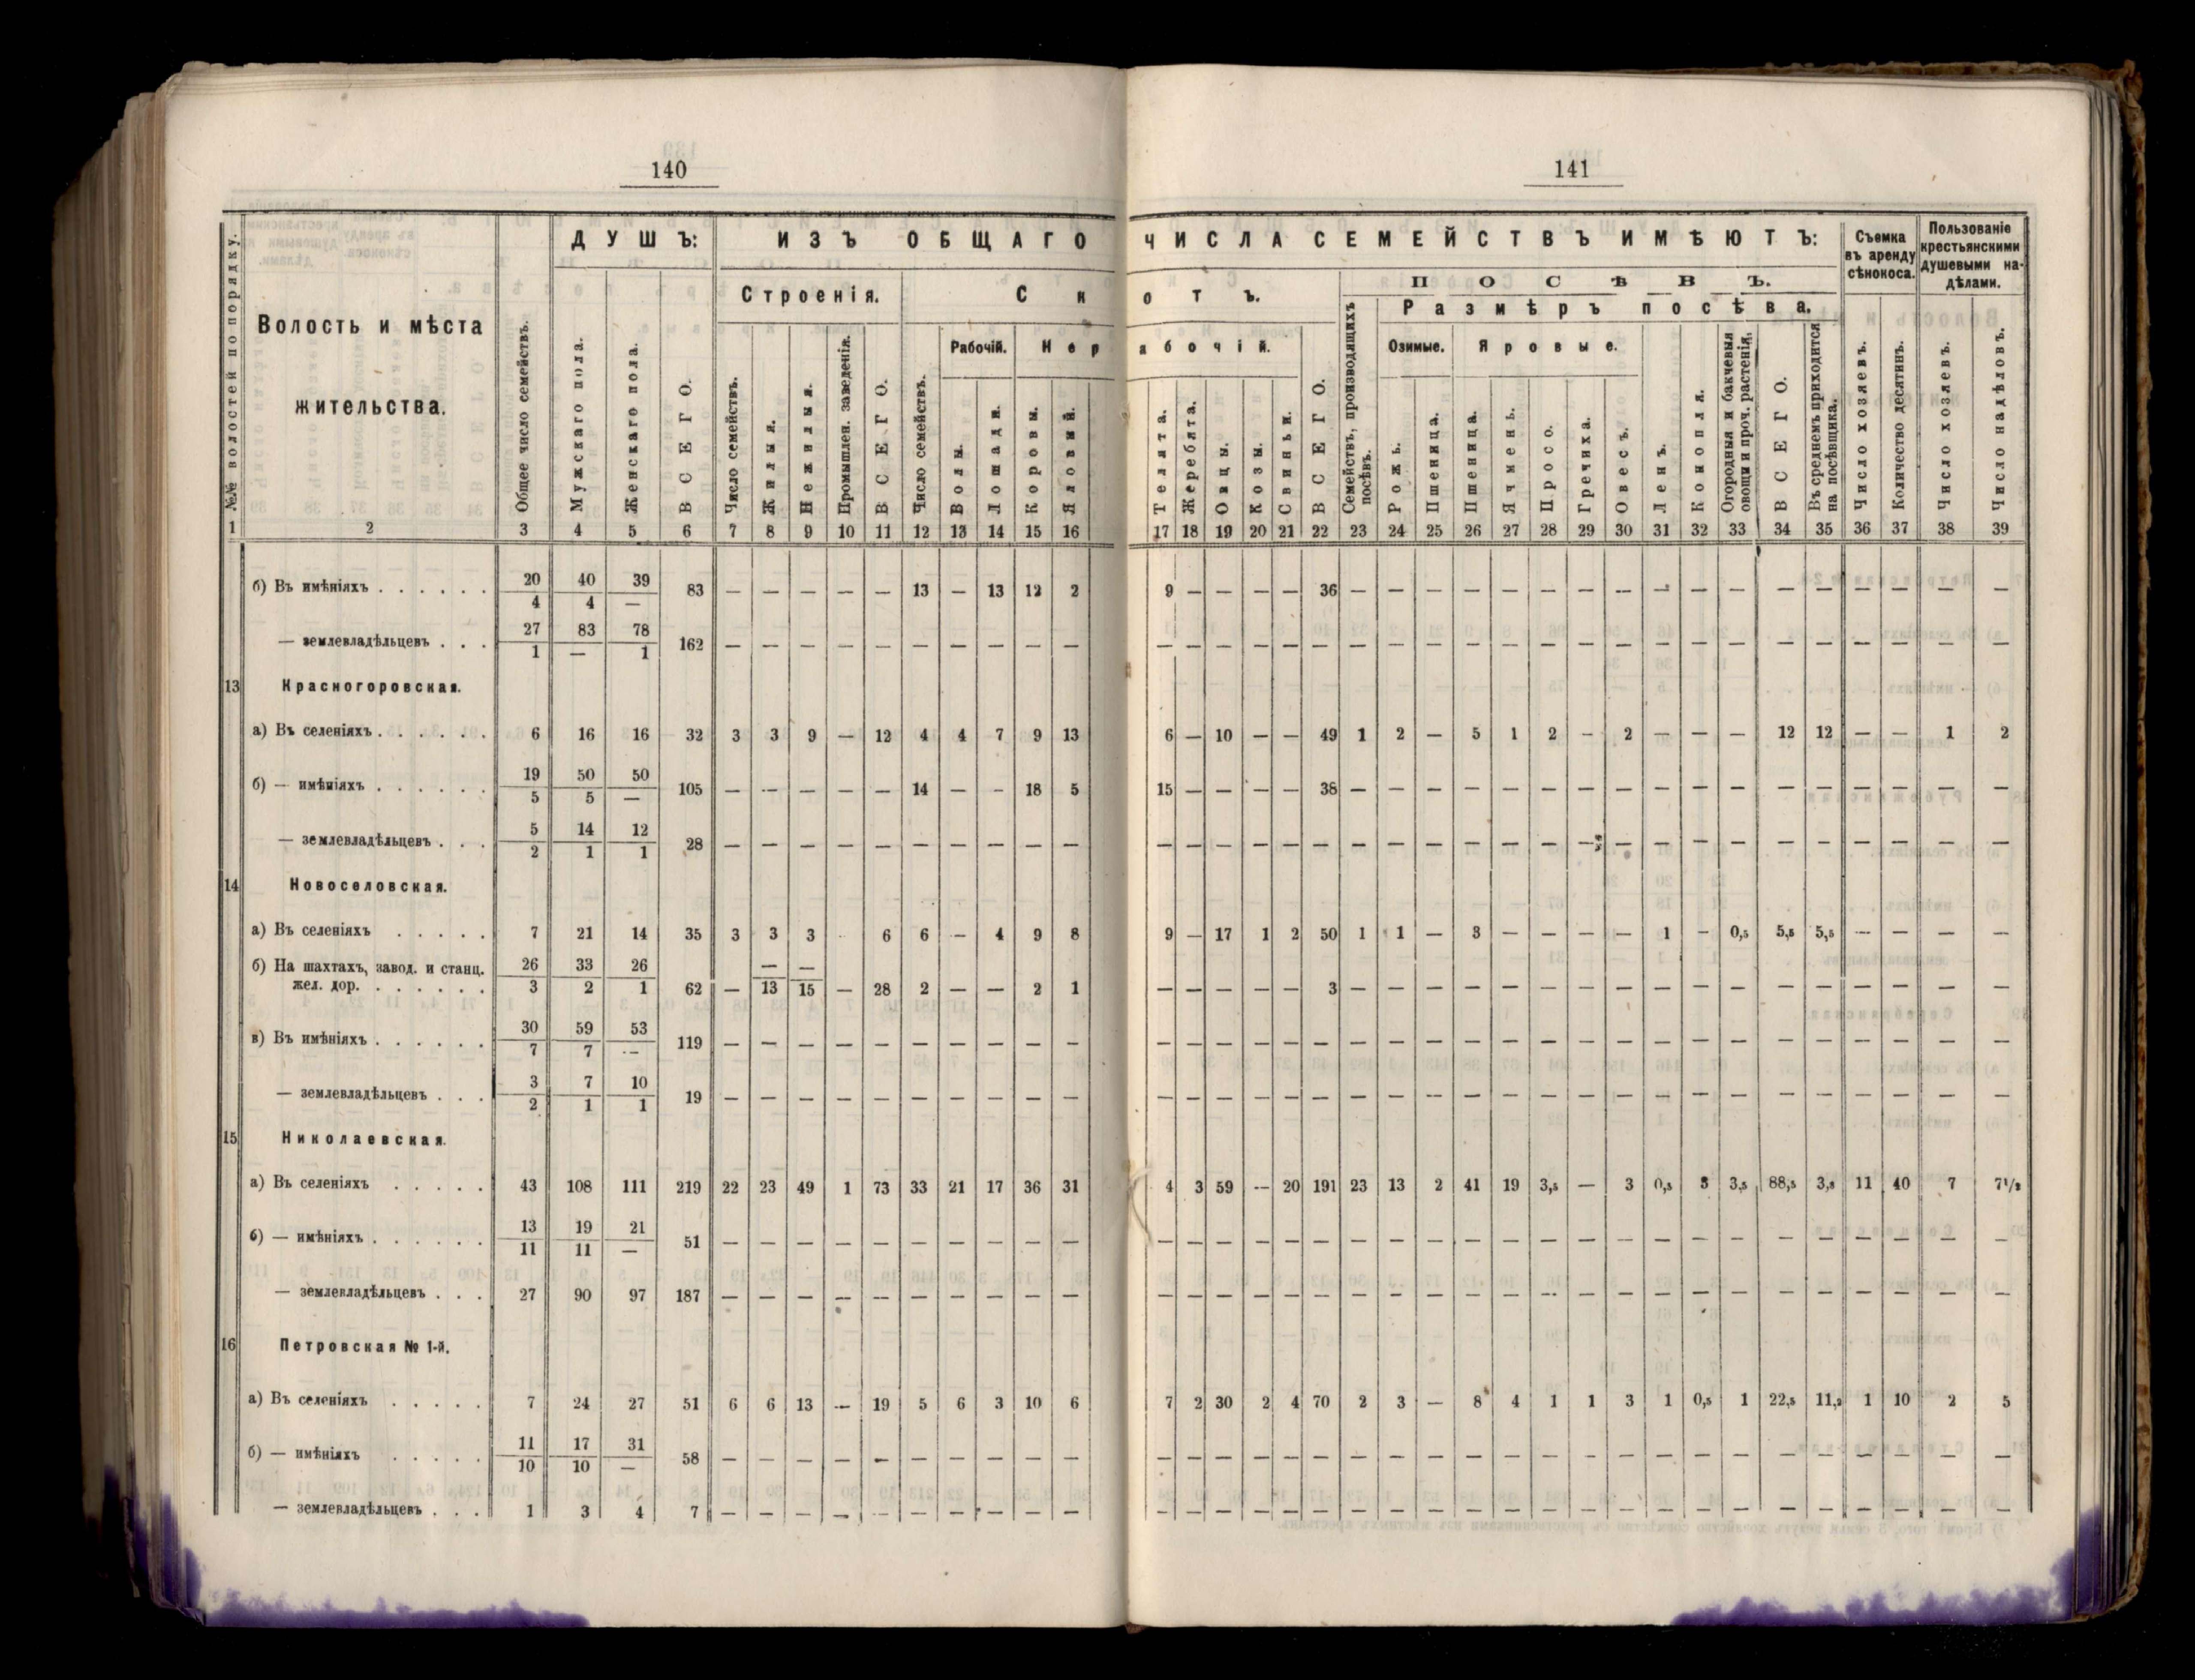 140
141
№№ волостей по порядку.
Волость и мѣста жительства.
Общее число семействъ.
ДУШЪ:
Мужскаго пола.
Женскаго пола.
ВСЕГО.
ИЗЪ ОБЩАГО ЧИСЛА СЕМЕЙСТВЪ ИМѢЮТЪ:
Строенія.
Число семействъ.
Жилыя.
Нежилыя.
Промышлен. заведенія.
ВСЕГО.
Скотъ.
Число семействъ.
Рабочій.
Волы.
Лошади.
Нерабочій.
Коровы.
Яловый.
Телята.
Жеребята.
Овцы.
Козы.
Свиньи.
ВСЕГО.
ПОСѢВЪ.
Семействъ, производящихъ посѣвъ.
Размѣръ посѣва.
Озимые.
Рожь.
Пшеница.
Яровые.
Пшеница.
Ячмень.
Просо.
Гречиха.
Овесъ.
Ленъ.
Конопля.
Огородныя и бакчевыя овощи и проч. растенія.
ВСЕГО.
Въ среднемъ приходится на посѣвщика.
Съемка въ аренду сѣнокоса.
Число хозяевъ.
Количество десятинъ.
Пользованіе крестьянскими душевыми надѣлами.
Число хозяевъ.
Число надѣловъ.
1 2 3 4 5 6 7 8 9 10 11 12 13 14 15 16 17 18 19 20 21 22 23 24 25 26 27 28 29 30 31 32 33 34 35 36 37 38 39
б) Въ имѣніяхъ . . . . . . 20/4 40/4 39/— 83 — — — — — 13 — 13 12 2 9 — — — — 36 — — — — — — — — — — — — — — — — —
— землевладѣльцевъ . . . 27/1 83/— 78/1 162 — — — — — — — — — — — — — — — — — — — — — — — — — — — — — — — — —
13 Красногоровская.
а) Въ селеніяхъ . . . . . . 6 16 16 32 3 3 9 — 12 4 4 7 9 13 6 — 10 — — 49 1 2 — 5 1 2 — 2 — — — 12 12 — — 1 2
б) — имѣніяхъ . . . . . . 19/5 50/5 50/— 105 — — — — — 14 — — 18 5 15 — — — — 38 — — — — — — — — — — — — — — — — —
— землевладѣльцевъ . . . 5/2 14/1 12/1 28 — — — — — — — — — — — — — — — — — — — — — — — — — — — — — — — — —
14 Новоселовская.
а) Въ селеніяхъ . . . . . 7 21 14 35 3 3 3 — 6 6 — 4 9 8 9 — 17 1 2 50 1 1 — 3 — — — — 1 — 0,5 5,5 5,5 — — — —
б) На шахтахъ, завод. и станц.
жел. дор. . . . . . . 26/3 33/2 26/1 62 — —/13 —/15 — 28 2 — — 2 1 — — — — — 3 — — — — — — — — — — — — — — — — —
в) Въ имѣніяхъ . . . . . . 30/7 59/7 53/— 119 — — — — — — — — — — — — — — — — — — — — — — — — — — — — — — — — —
— землевладѣльцевъ . . . 3/2 7/1 10/1 19 — — — — — — — — — — — — — — — — — — — — — — — — — — — — — — — — —
15 Николаевская.
а) Въ селеніяхъ . . . . . 43 108 111 219 22 23 49 1 73 33 21 17 36 31 4 3 59 — 20 191 23 13 2 41 19 3,5 — 3 0,5 3 3,5 88,5 3,8 11 40 7 7½
б) — имѣніяхъ . . . . . . 13/11 19/11 21/— 51 — — — — — — — — — — — — — — — — — — — — — — — — — — — — — — — — —
— землевладѣльцевъ . . . 27 90 97 187 — — — — — — — — — — — — — — — — — — — — — — — — — — — — — — — — —
16 Петровская № 1-й.
а) Въ селеніяхъ . . . . . 7 24 27 51 6 6 13 — 19 5 6 3 10 6 7 2 30 2 4 70 2 3 — 8 4 1 1 3 1 0,5 1 22,5 11,2 1 10 2 5
б) — имѣніяхъ . . . . . 11/10 17/10 31/— 58 — — — — — — — — — — — — — — — — — — — — — — — — — — — — — — — — —
— землевладѣльцевъ . . . 1 3 4 7 — — — — — — — — — — — — — — — — — — — — — — — — — — — — — — — — —